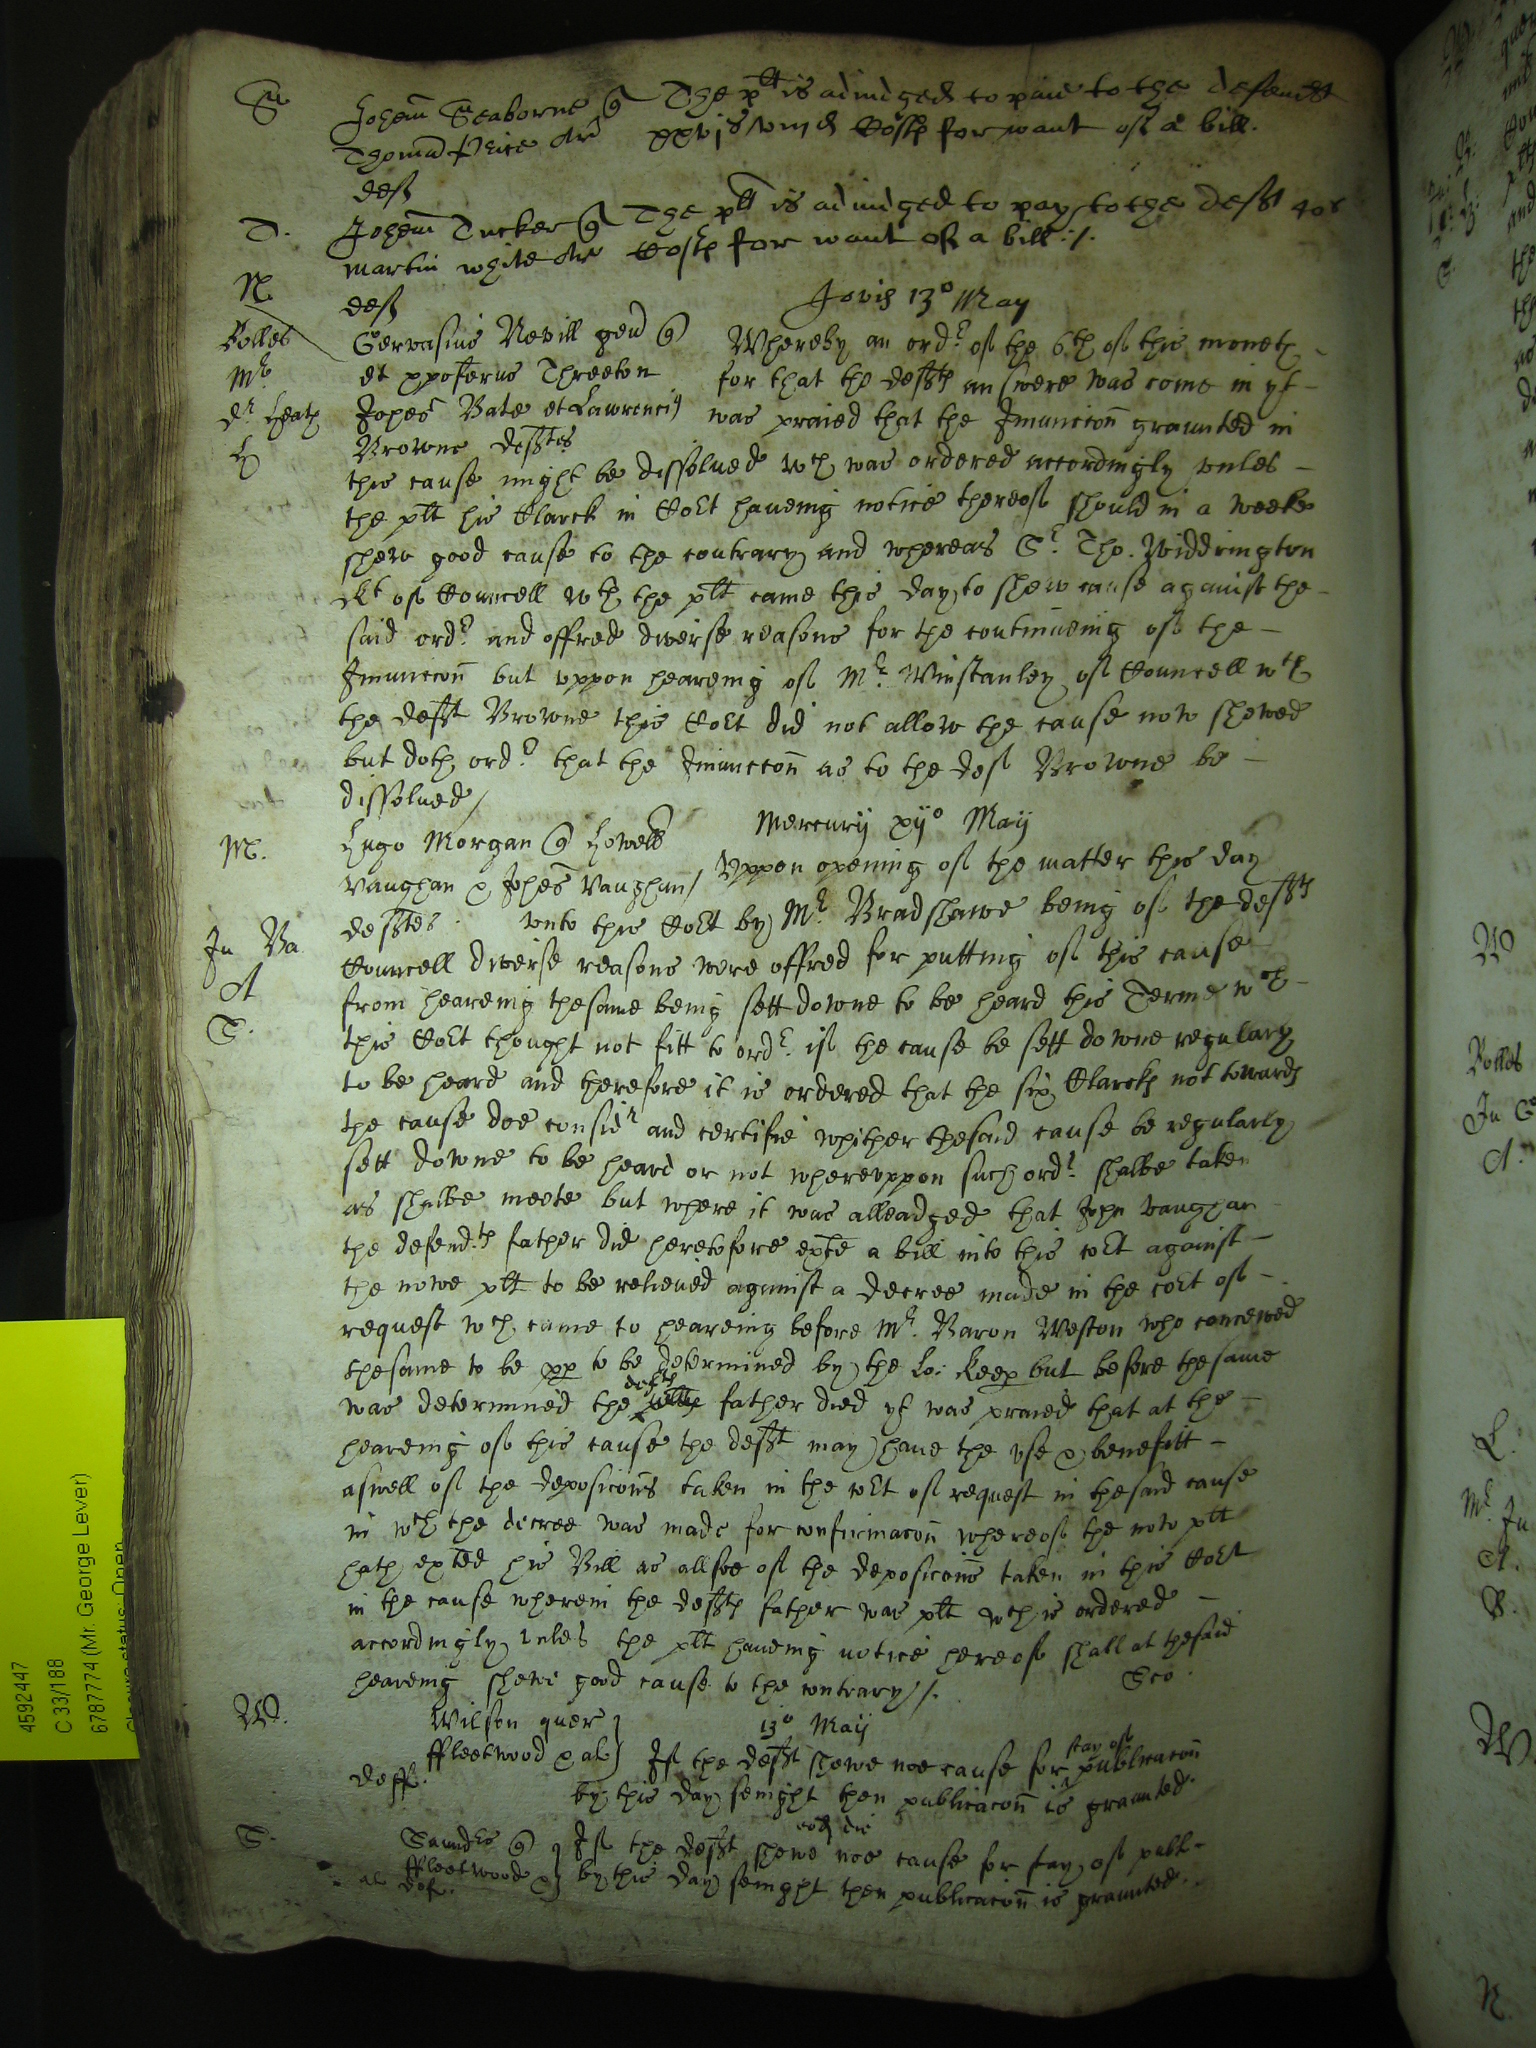 S
Johem Seaborne q The plt is adiudged to paie to the defendt
Thomas Price Ar xxvjs viijd Costs for want of a bill.
def
T. Johem Tucker q The plt is adiudged to pay to the deft 40s
Martin White Ar Costs for want of a bill ./.
def
N
Jovis 13o May
Bolles Gervasius Nevill gen q Whereby an ordr of the 6th of this moneth
Mr et xpoferus Threeton for that the defts answere was come in yt
Dr Heath Johes Bate et Lawrencij was praied that the Iniunccon graunted in
H Browne deftes
this cause might be dissolued wch was ordered accordingly vnles
the plt his Clarck in Cort haueing notice thereof should in a weeke
shew good cause to the contrary and whereas Sr. Tho. Widdrington
Kt of Councell wth the plt came this day to shew cause against the
said ordr and offred diverse reasons for the continueing of the
Iniunccon but vppon heareing of Mr. Winstanley of Councell wth
the deft Browne this Cort did not allow the cause now shewed
but doth ordr that the Iniunccon as to the def Browne be
dissolued /
Mercurij xijo Maij
M. Hugo Morgan q Howell
Vaughan & Johes Vaughan / Vppon opening of the matter this day
deftes. vnto this Cort by Mr Bradshawe being of the defts
Ju Ba
Councell diverse reasons were offred for putting of this cause
A
from heareing thesame being sett downe to be heard this Terme wch
T.
this Cort thought not fitt to ordr. if the cause be sett downe regulary
to be heard and therefore it is ordered that the six Clarcks not towards
the cause doe considr and certifie whither thesaid cause be regularly
sett downe to be heard or not wherevppon such ordr. shalbe taken
as shalbe meete but where it was alleadged that John Vaughan
the defendts father did heretofore exte a bill into this cort against
the nowe plt to be relieued against a decree made in the cort of
request wch came to heareing before Mr. Baron Weston who conceived
thesame to be pp to be determined by the Lo: Keep but before thesame
defts
was determined the plts father died yt was praied that at the
heareing of this cause the deft may haue the vse & benefitt
aswell of the deposicons taken in the cort of request in thesaid cause
in wch the decree was made for confirmacon whereof the now plt
hath exted his Bill as allsoe of the deposicons taken in this Cort
in the cause wherein the defts father was plt wch is ordered
accordingly vnles the plt haueing notice hereof shall at thesaid
heareing shewe good cause to the contrary /.
Sco.
W. Wilson quer 13o Maij
stay of
ffleetwood & al If the deft shewe noe cause for publicacon
deff. by this day senight then publicacon is graunted.
eod die
S. Saunders q If the deft shewe noe cause for stay of publ
ffleetwood & by this day senight then publicacon is graunted.
al def.
4592447
C 33/188
6787774 (Mr. George Lever)
Closure status: Open